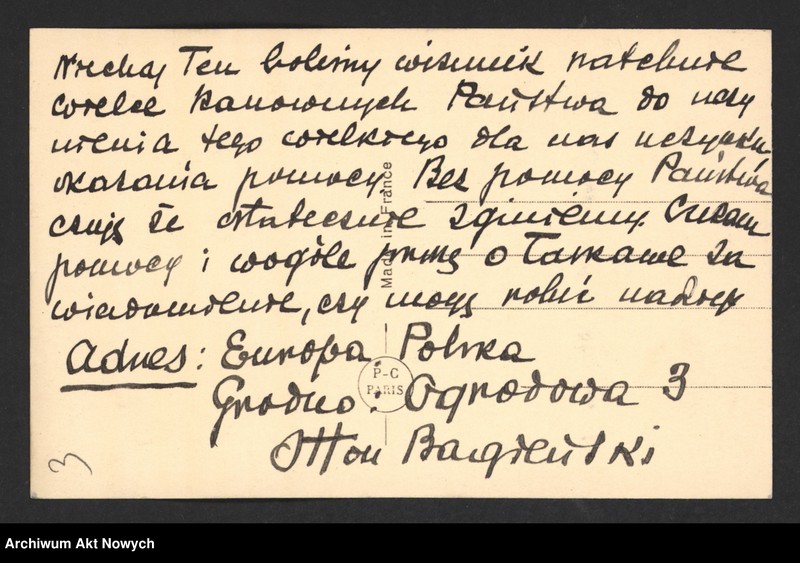 Niechaj Ten bolesny wizerunek natchnie
wielce Szanownych Państwa do uczy
nienia tego wielkiego dla nas uczynku
okazania pomocy. Bez pomocy Państwa
czuję że ostatecznie zginiemy. Czekam
pomocy i wogóle proszę o Łaskawe za
wiadomienie, czy mogę robić nadzieję
Adres: Europa, Polska
Grodno: Ogrodowa 3
Otton
3
Made in France
P-C
PARIS
Archiwum Akt Nowych